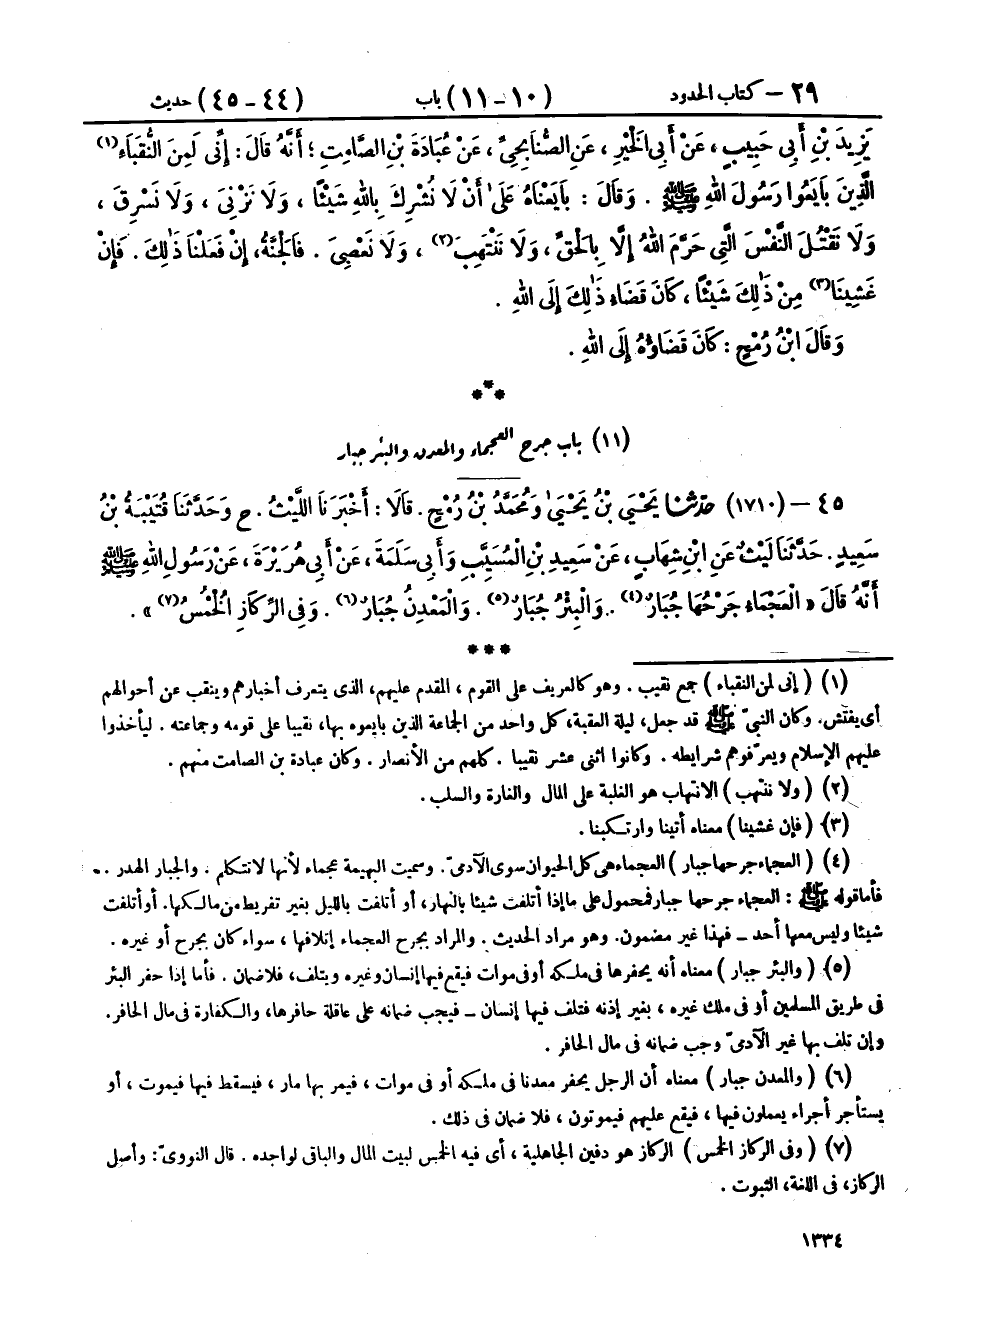 ٢٩ – كتاب الحدود (١٠-١١) باب (٤٤-٤٥) حديث
يَزِيدَ بْنِ أَبِي حَبِيبٍ ، عَنْ أَبِي الْخَيْرِ ، عَنِ الصُّنَابِحِيِّ ، عَنْ عُبَادَةَ بْنِ الصَّامِتِ ؛ أَنَّهُ قَالَ : إِنِّي لَمِنَ النُّقَبَاءِ(١)
الَّذِينَ بَايَعُوا رَسُولَ اللهِ ﷺ . وَقَالَ : بَايَعْنَاهُ عَلَىٰ أَنْ لَا نُشْرِكَ بِاللهِ شَيْئًا ، وَلَا نَزْنِيَ ، وَلَا نَسْرِقَ ،
وَلَا نَقْتُلَ النَّفْسَ الَّتِي حَرَّمَ اللهُ إِلَّا بِالْحَقِّ ، وَلَا نَنْتَهِبَ(٢) ، وَلَا نَعْصِيَ . فَالْجَنَّةُ، إِنْ فَعَلْنَا ذَٰلِكَ . فَإِنْ
غَشِينَا(٣) مِنْ ذَٰلِكَ شَيْئًا ، كَانَ قَضَاءُ ذَٰلِكَ إِلَى اللهِ .
وَقَالَ ابْنُ رُمْحٍ : كَانَ قَضَاؤُهُ إِلَى اللهِ .
***
(١١) باب جرح العجماء والمعدن والبئر جبار
٤٥ – (١٧١٠) حَدَّثَنَا يَحْيَى بْنُ يَحْيَىٰ وَمُحَمَّدُ بْنُ رُمْحٍ . قَالَا : أَخْبَرَنَا اللَّيْثُ . ح وَحَدَّثَنَا قُتَيْبَةُ بْنُ
سَعِيدٍ . حَدَّثَنَا لَيْثٌ عَنِ ابْنِ شِهَابٍ ، عَنْ سَعِيدِ بْنِ الْمُسَيَّبِ وَأَبِي سَلَمَةَ ، عَنْ أَبِي هُرَيْرَةَ ، عَنْ رَسُولِ اللهِ ﷺ
أَنَّهُ قَالَ « الْعَجْمَاءُ جَرْحُهَا جُبَارٌ(٤) . وَالْبِئْرُ جُبَارٌ(٥) . وَالْمَعْدِنُ جُبَارٌ(٦) . وَفِي الرِّكَازِ الْخُمُسُ(٧) » .
***
(١) ( إنى لمن النقباء ) جمع نقيب . وهو كالعريف على القوم ، المقدم عليهم، الذى يتعرف أخبارهم وينقب عن أحوالهم
أى يفتش. وكان النبىّ ﷺ قد جعل، ليلة العقبة، كل واحد من الجماعة الذين بايعوه بها، نقيبا على قومه وجماعته . ليأخذوا
عليهم الإسلام ويعرّفوهم شرايطه . وكانوا اثنى عشر نقيبا . كلهم من الأنصار . وكان عبادة بن الصامت منهم .
(٢) ( ولا ننتهب ) الانتهاب هو الغلبة على المال والغارة والسلب .
(٣) ( فإن غشينا ) معناه أتينا وارتكبنا .
(٤) ( العجماء جرحها جبار ) العجماء هى كل الحيوان سوى الآدمىّ . وسميت البهيمة عجماء لأنها لا تتكلم . والجبار الهدر .
فأما قوله ﷺ : العجماء جرحها جبار فمحمول على ما إذا أتلفت شيئا بالنهار، أو أتلفت بالليل بغير تفريط من مالكها. أو أتلفت
شيئا وليس معها أحد – فهذا غير مضمون. وهو مراد الحديث . والمراد بجرح العجماء إتلافها ، سواء كان بجرح أو غيره .
(٥) ( والبئر جبار ) معناه أنه يحفرها فى ملكه أو فى موات فيقع فيها إنسان وغيره ويتلف، فلا ضمان . فأما إذا حفر البئر
فى طريق المسلمين أو فى ملك غيره ، بغير إذنه فتلف فيها إنسان – فيجب ضمانه على عاقلة حافرها، والكفارة فى مال الحافر.
وإن تلف بها غير الآدمىّ وجب ضمانه فى مال الحافر .
(٦) ( والمعدن جبار ) معناه أن الرجل يحفر معدنا فى ملكه أو فى موات ، فيمر بها مار ، فيسقط فيها فيموت ، أو
يستأجر أجراء يعملون فيها ، فيقع عليهم فيموتون ، فلا ضمان فى ذلك .
(٧) ( وفى الركاز الخمس ) الركاز هو دفين الجاهلية ، أى فيه الخمس لبيت المال والباقى لواجده . قال النووىّ : وأصل
الركاز، فى اللغة، الثبوت .
١٣٣٤